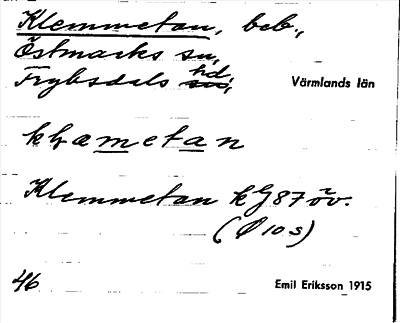 Klemmetan, beb.,
Östmarks sn,
Fryksdals hd,
Värmlands län
Klemmetan kg 87 öv.
(Ø 10 s)
46
Emil Eriksson 1915